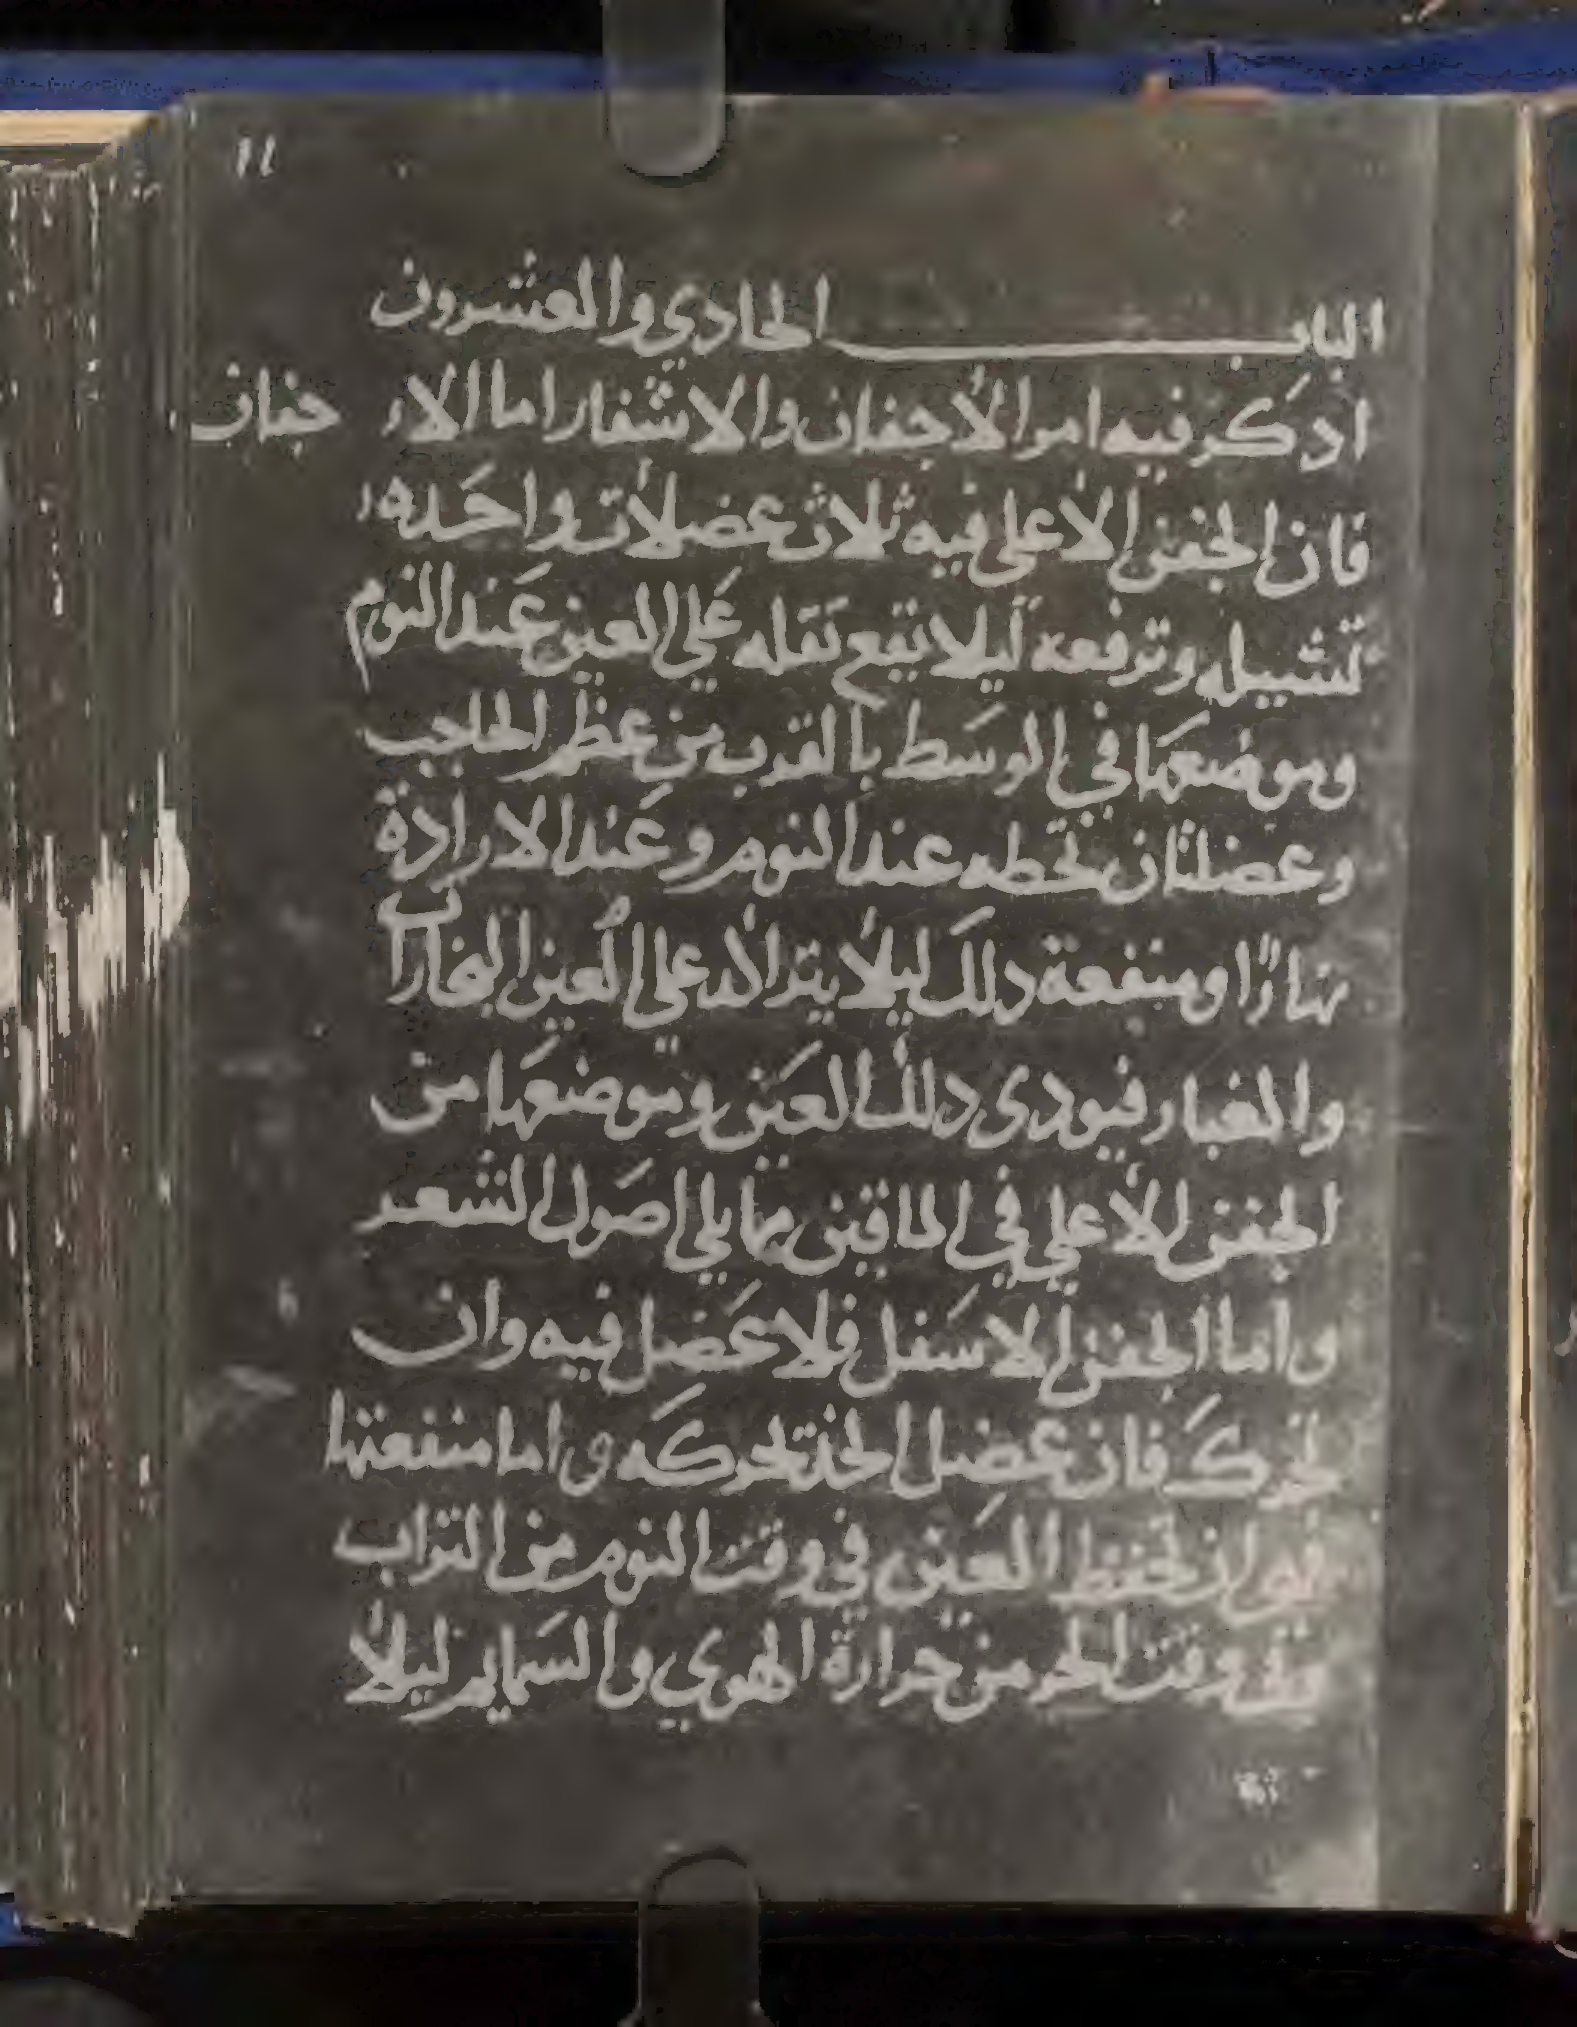 ١٤
الباب الحادي والعشرون
ادكر فيه امر الأجفان والاشفار اما الاجفان
فان الجفن الاعلى فيه ثلاث عضلات واحده
تشيله وترفعه ليلا يقع ثقله علي العين عند النوم
وموضعها في الوسط بالقرب من عظم الحاجب
وعضلتان تحطه عند النوم وعند الارادة
نهارًا ومنفعة دلك ليلا يترا علي العين البخارات
والغبار فيودى دلك العين وموضعها من
الجفن الأعلي في الماقين مما يلي اصول الشعر
واما الجفن الاسفل فلا عضل فيه وان
تحرك فان عضل الخد تحركه واما منفعتها
فهو ان تحفظ العين في وقت النوم من التراب
وفي وقت الحر من حرارة الهوي والسمايم ليلا